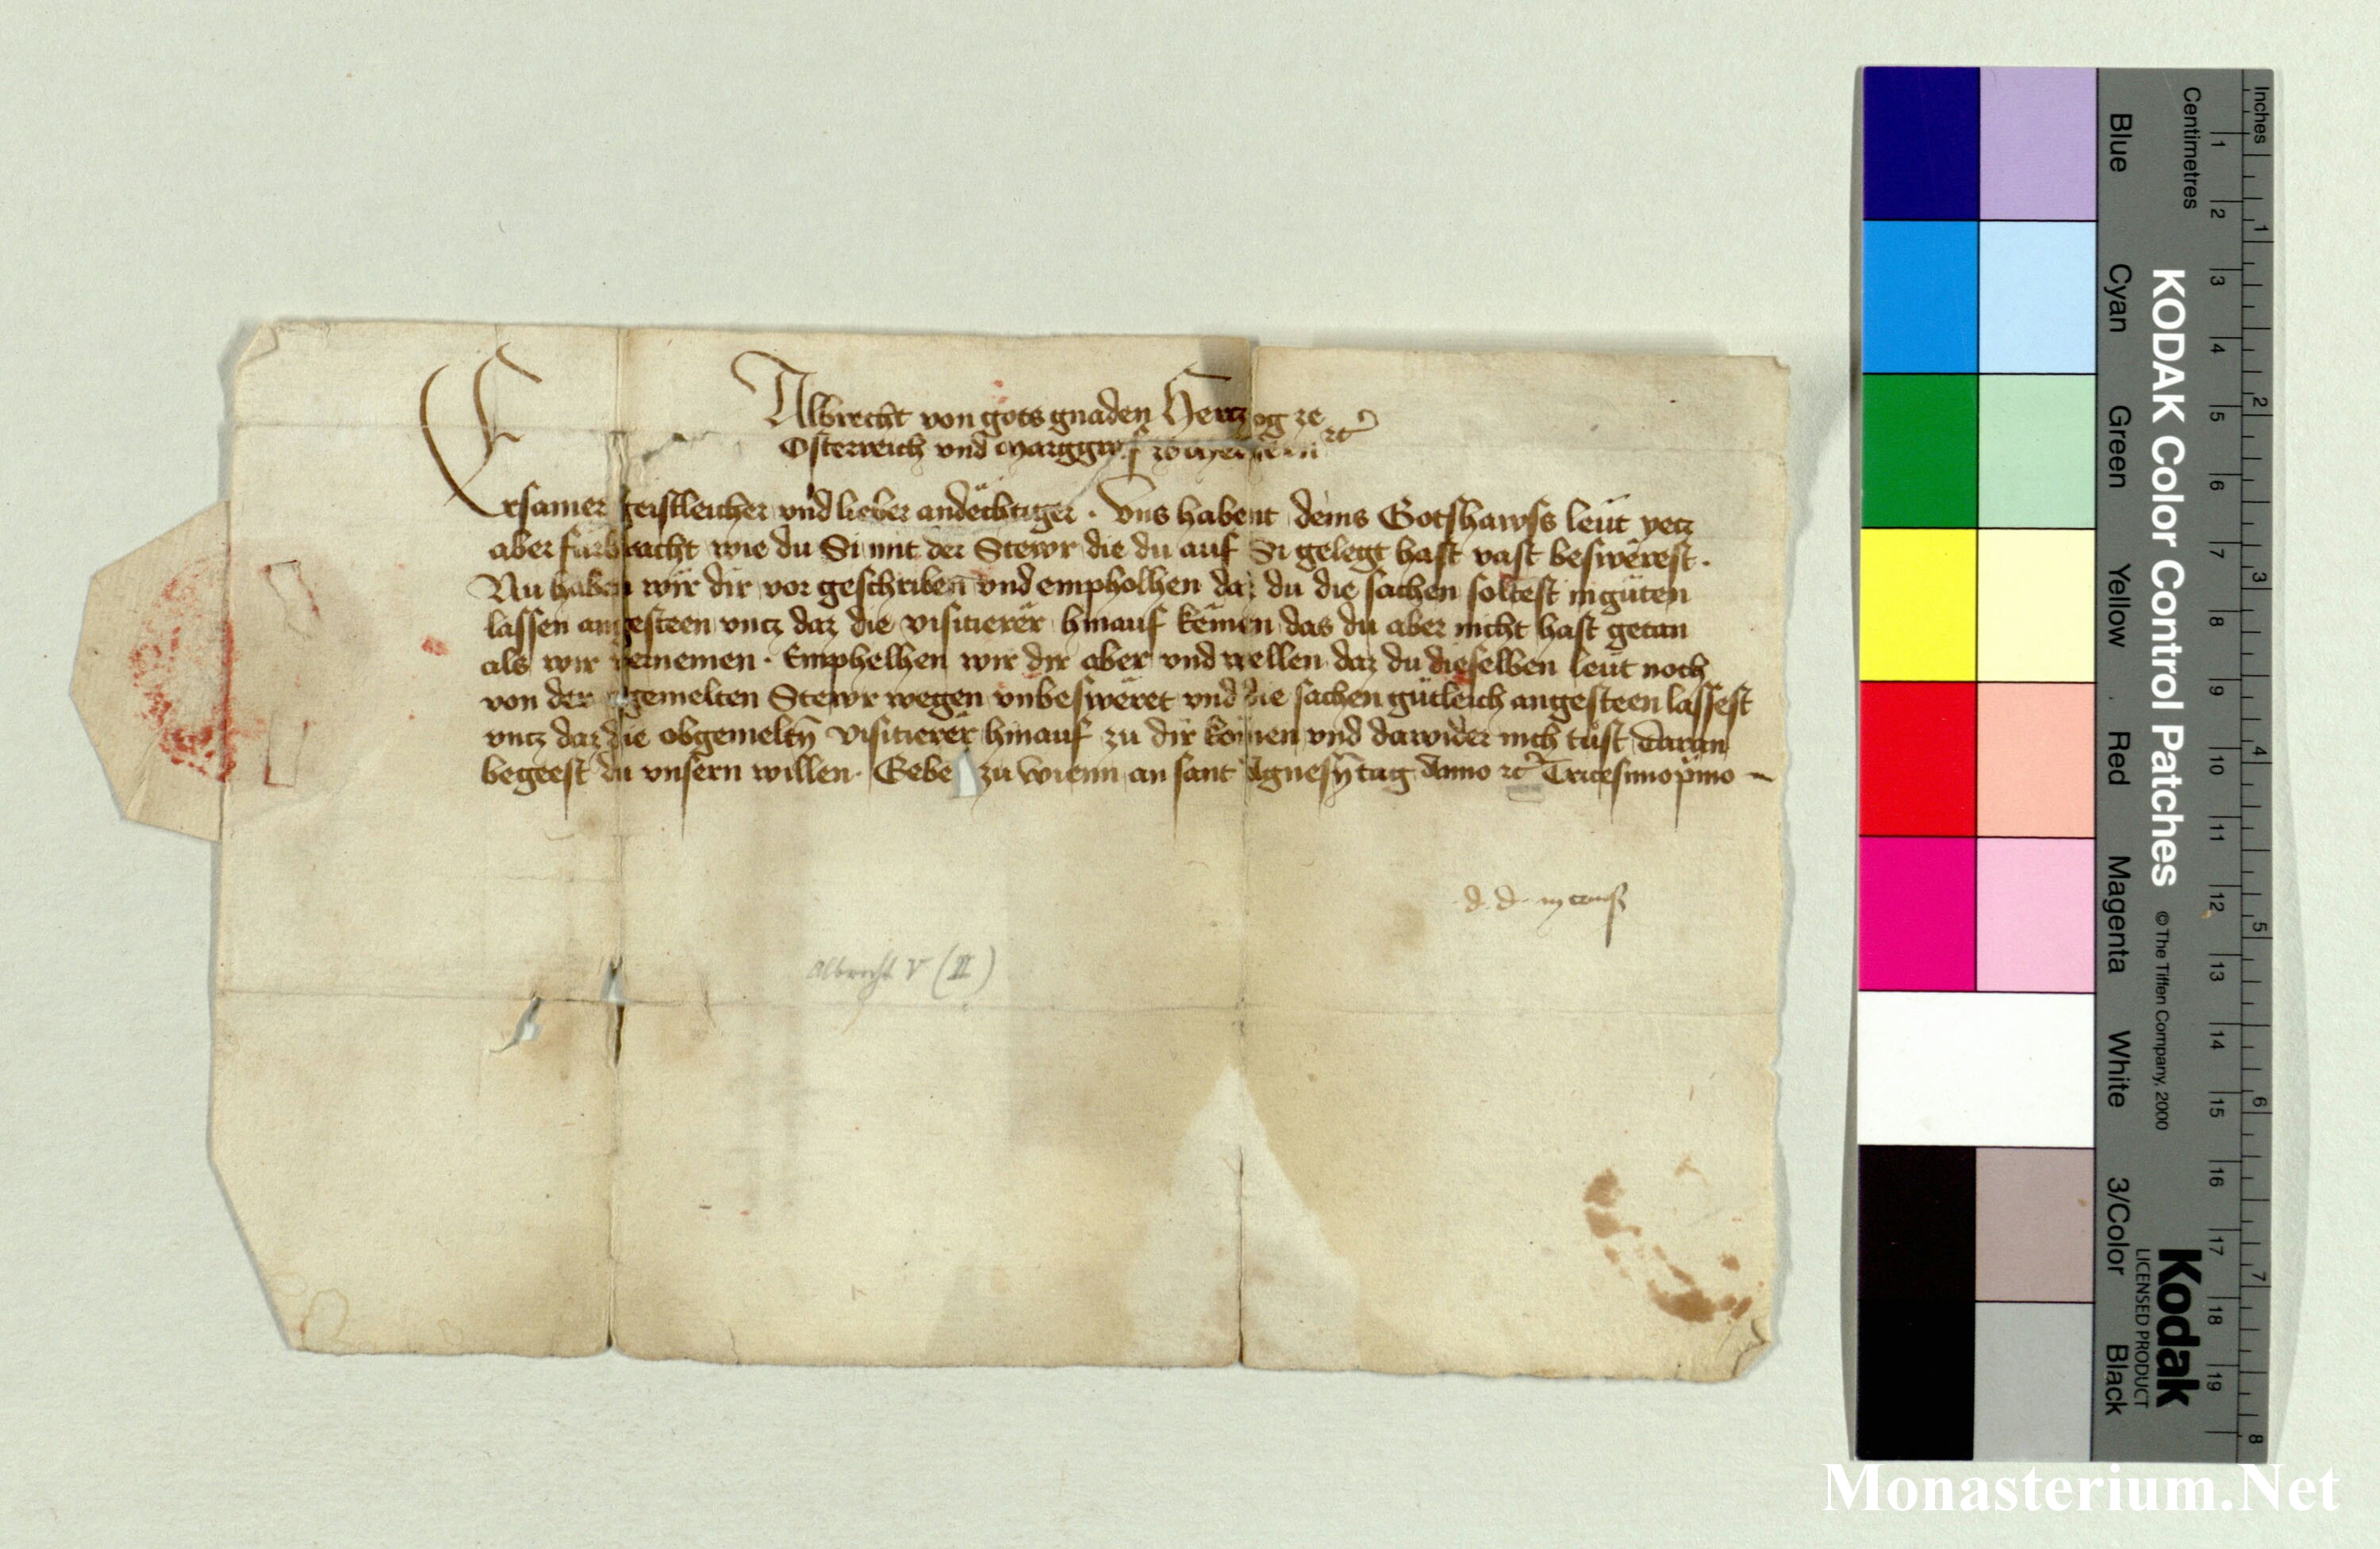 Albrecht von gots gnaden Hertzog ze
Osterreich vnd Marggraf ze Merhern etc
Ersamer geistleicher vnd lieber andëchtiger . Vns habent deins Gotshawss leüt yetz
aber fürbracht wie du Si mit der Stewr die du auf Si gelegt hast vast beswërest .
Nu haben wir dir vor geschriben vnd empholhen daz du die sachen soltest in güten
lassen angesteen vntz daz die visitierër hinauf këmen das du aber nicht hast getan
als wir vernemen . Emphelhen wir dir aber vnd wellen daz du dieselben leüt noch
von der egemelten Stewr wegen vnbeswëret vnd die sachen gütleich angesteen lassest
vntz daz die obgemeltn visitierër hinauf zu dir komen vnd dawider nich tüst Daran
begeest du vnsern willen . Gebe zu Wienn an sant Agnesn tag Anno etc Tricesimoprimo
d. d. in
Albrecht V (II)
KODAK Color Control Patches
© The Tiffen Company, 2000
Kodak
LICENSED PRODUCT
Inches
Centimetres
Blue
Cyan
Green
Yellow
Red
Magenta
White
3/Color
Black
1 2 3 4 5 6 7 8 9 10 11 12 13 14 15 16 17 18 19
1 2 3 4 5 6 7 8
Monasterium.Net